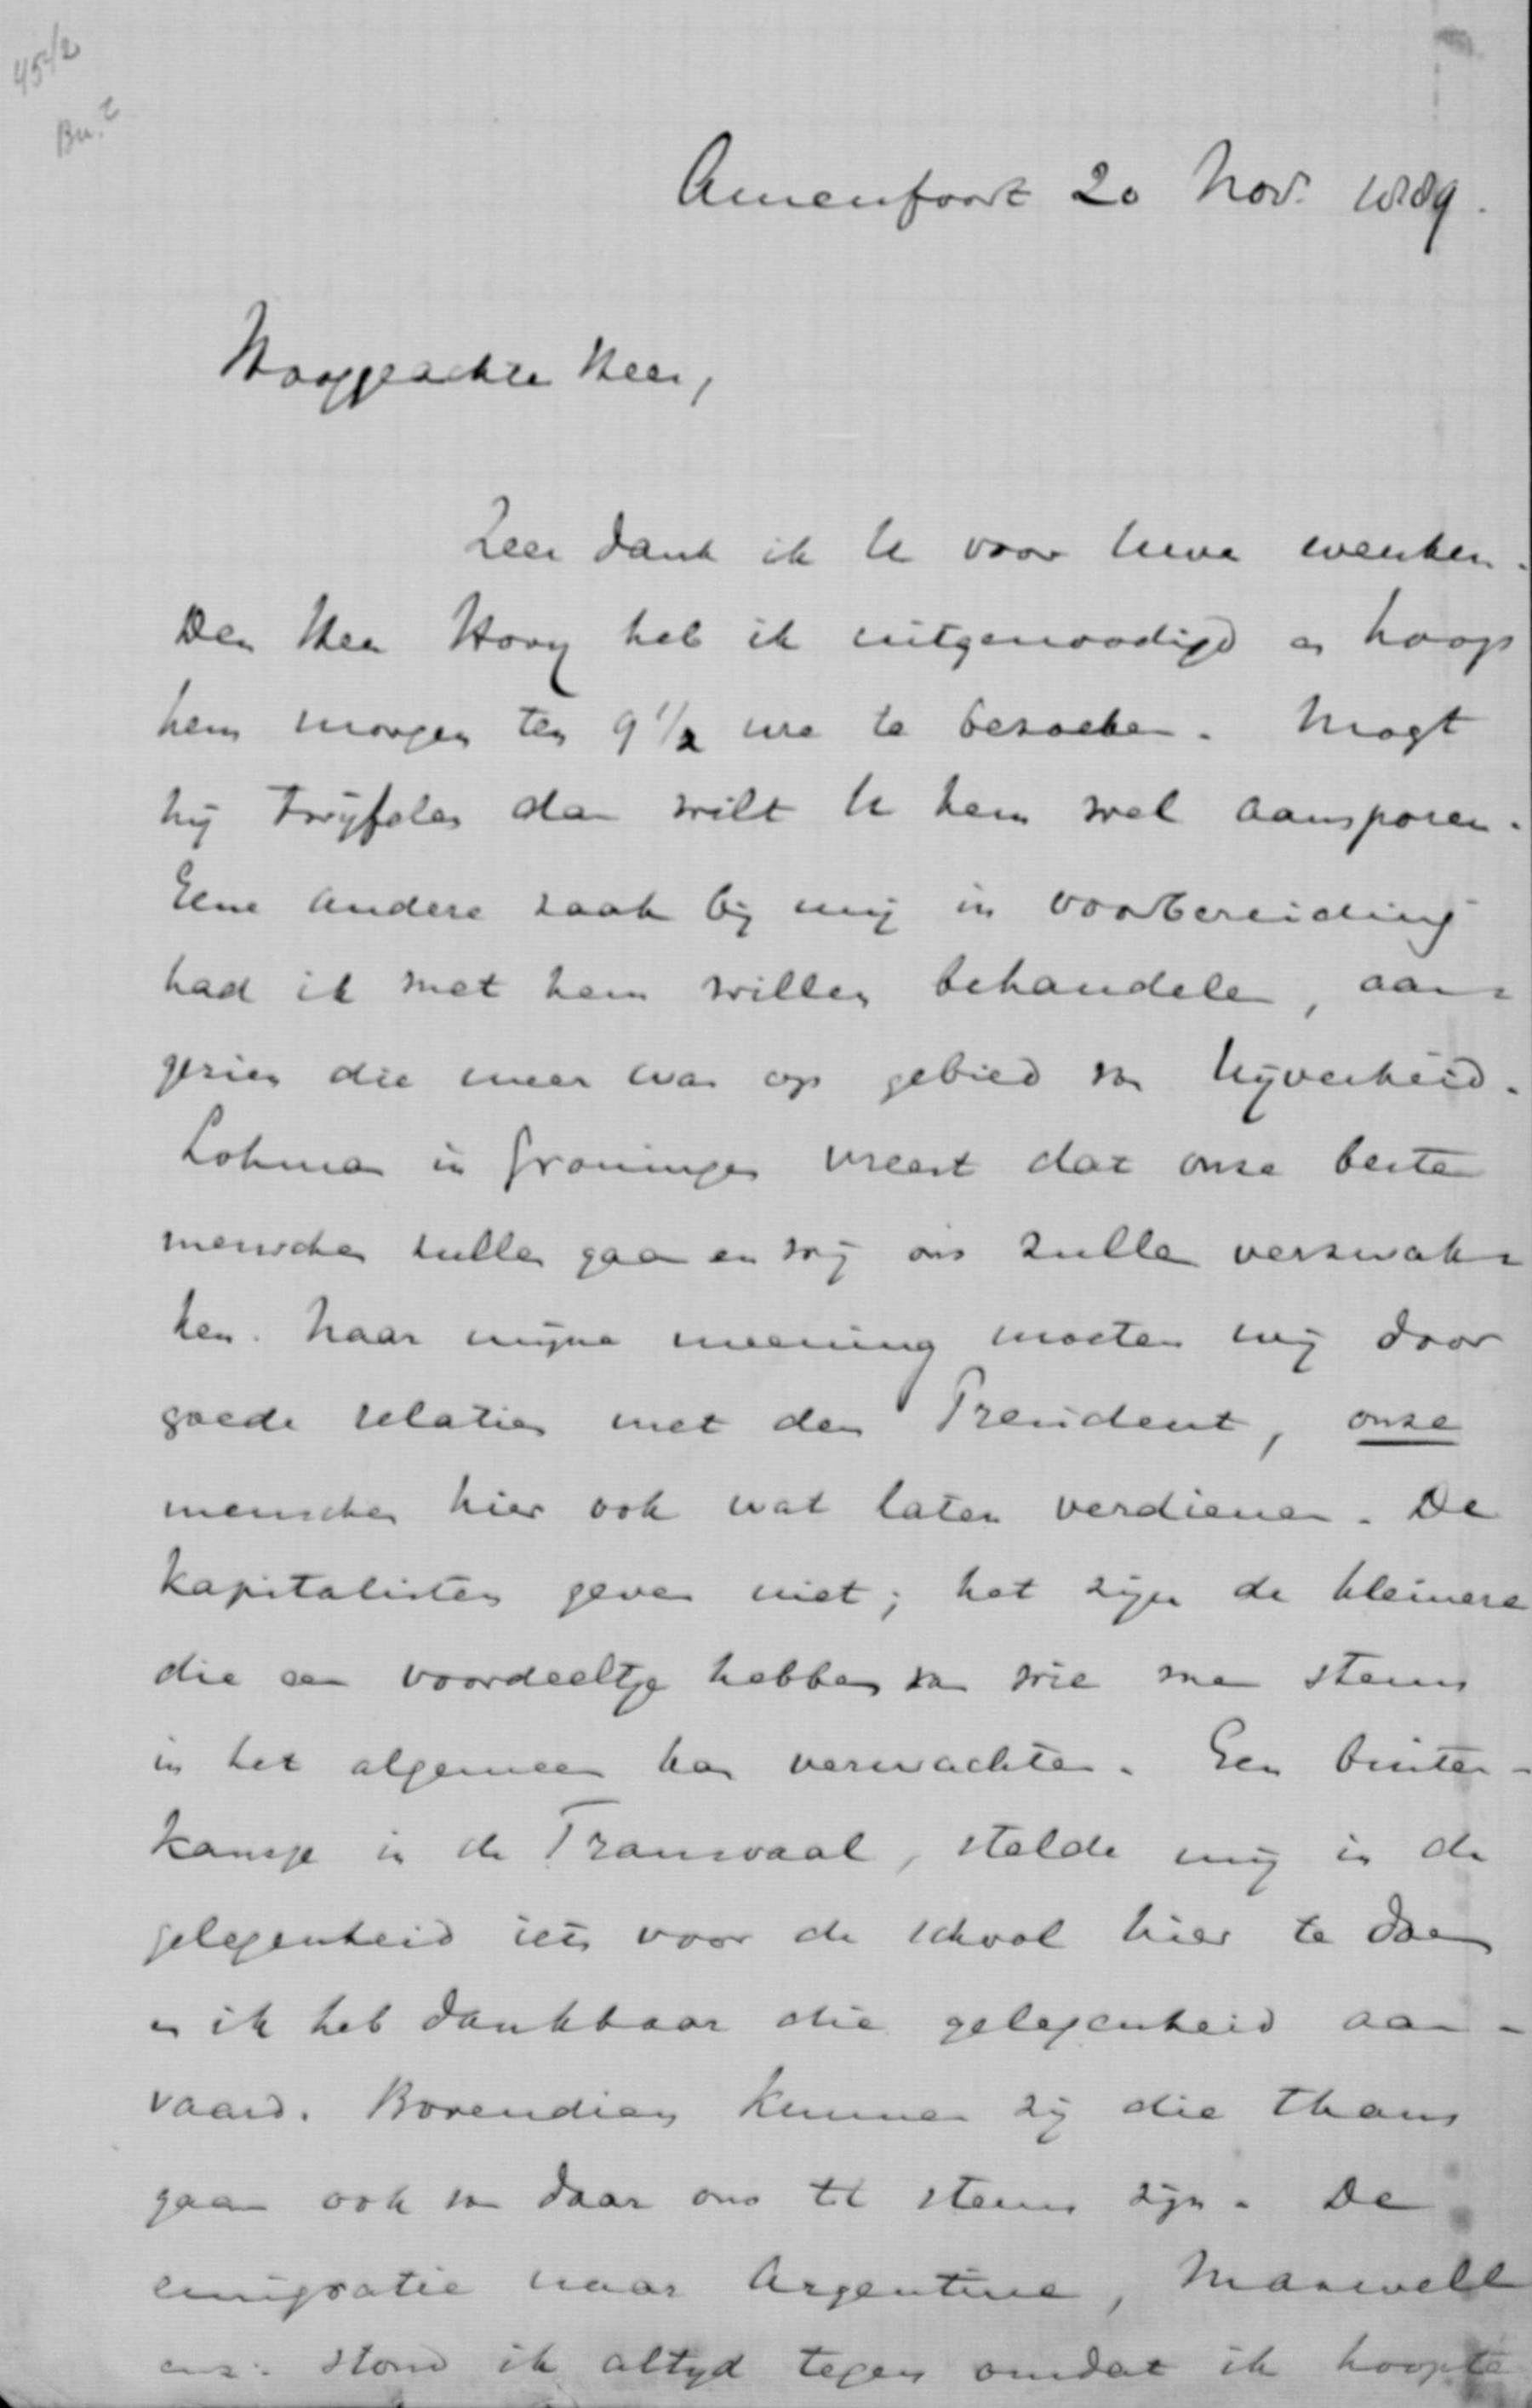 45/2
Bu. 2
Amersfoort 20 Nov. 1889.
Hooggeachte Heer,
Zeer dank ik U voor Uwe wenken.
Den Heer Hovy heb ik uitgenoodigd en hoop
hem morgen ten 9 1/2 ure te bezoeken. Mogt
hij twijfelen dan wilt U hem wel aansporen.
Eene andere zaak bij mij in voorbereiding
had ik met hem willen behandelen, aan=
gezien die meer was op gebied van Nijverheid.
Lohman in Groningen vreest dat onze beste
menschen zullen gaan en wij ons zullen verzwak=
ken. Naar mijne meening moeten wij door
goede relatien met den President, onze
menschen hier ook wat laten verdienen. De
kapitalisten geven niet; het zijn de kleinere
die een voordeeltje hebben van wie men steun
in het algemeen kan verwachten. Een buiten-
kansje in de Transvaal, stelde mij in de
gelegenheid iets voor de school hier te doen
en ik heb dankbaar die gelegenheid aan-
vaard. Bovendien kunnen zij die thans
gaan ook van daar ons tot steun zijn. De
emigratie naar Argentine, Maxwell
enz. stond ik altyd tegen omdat ik hoopte